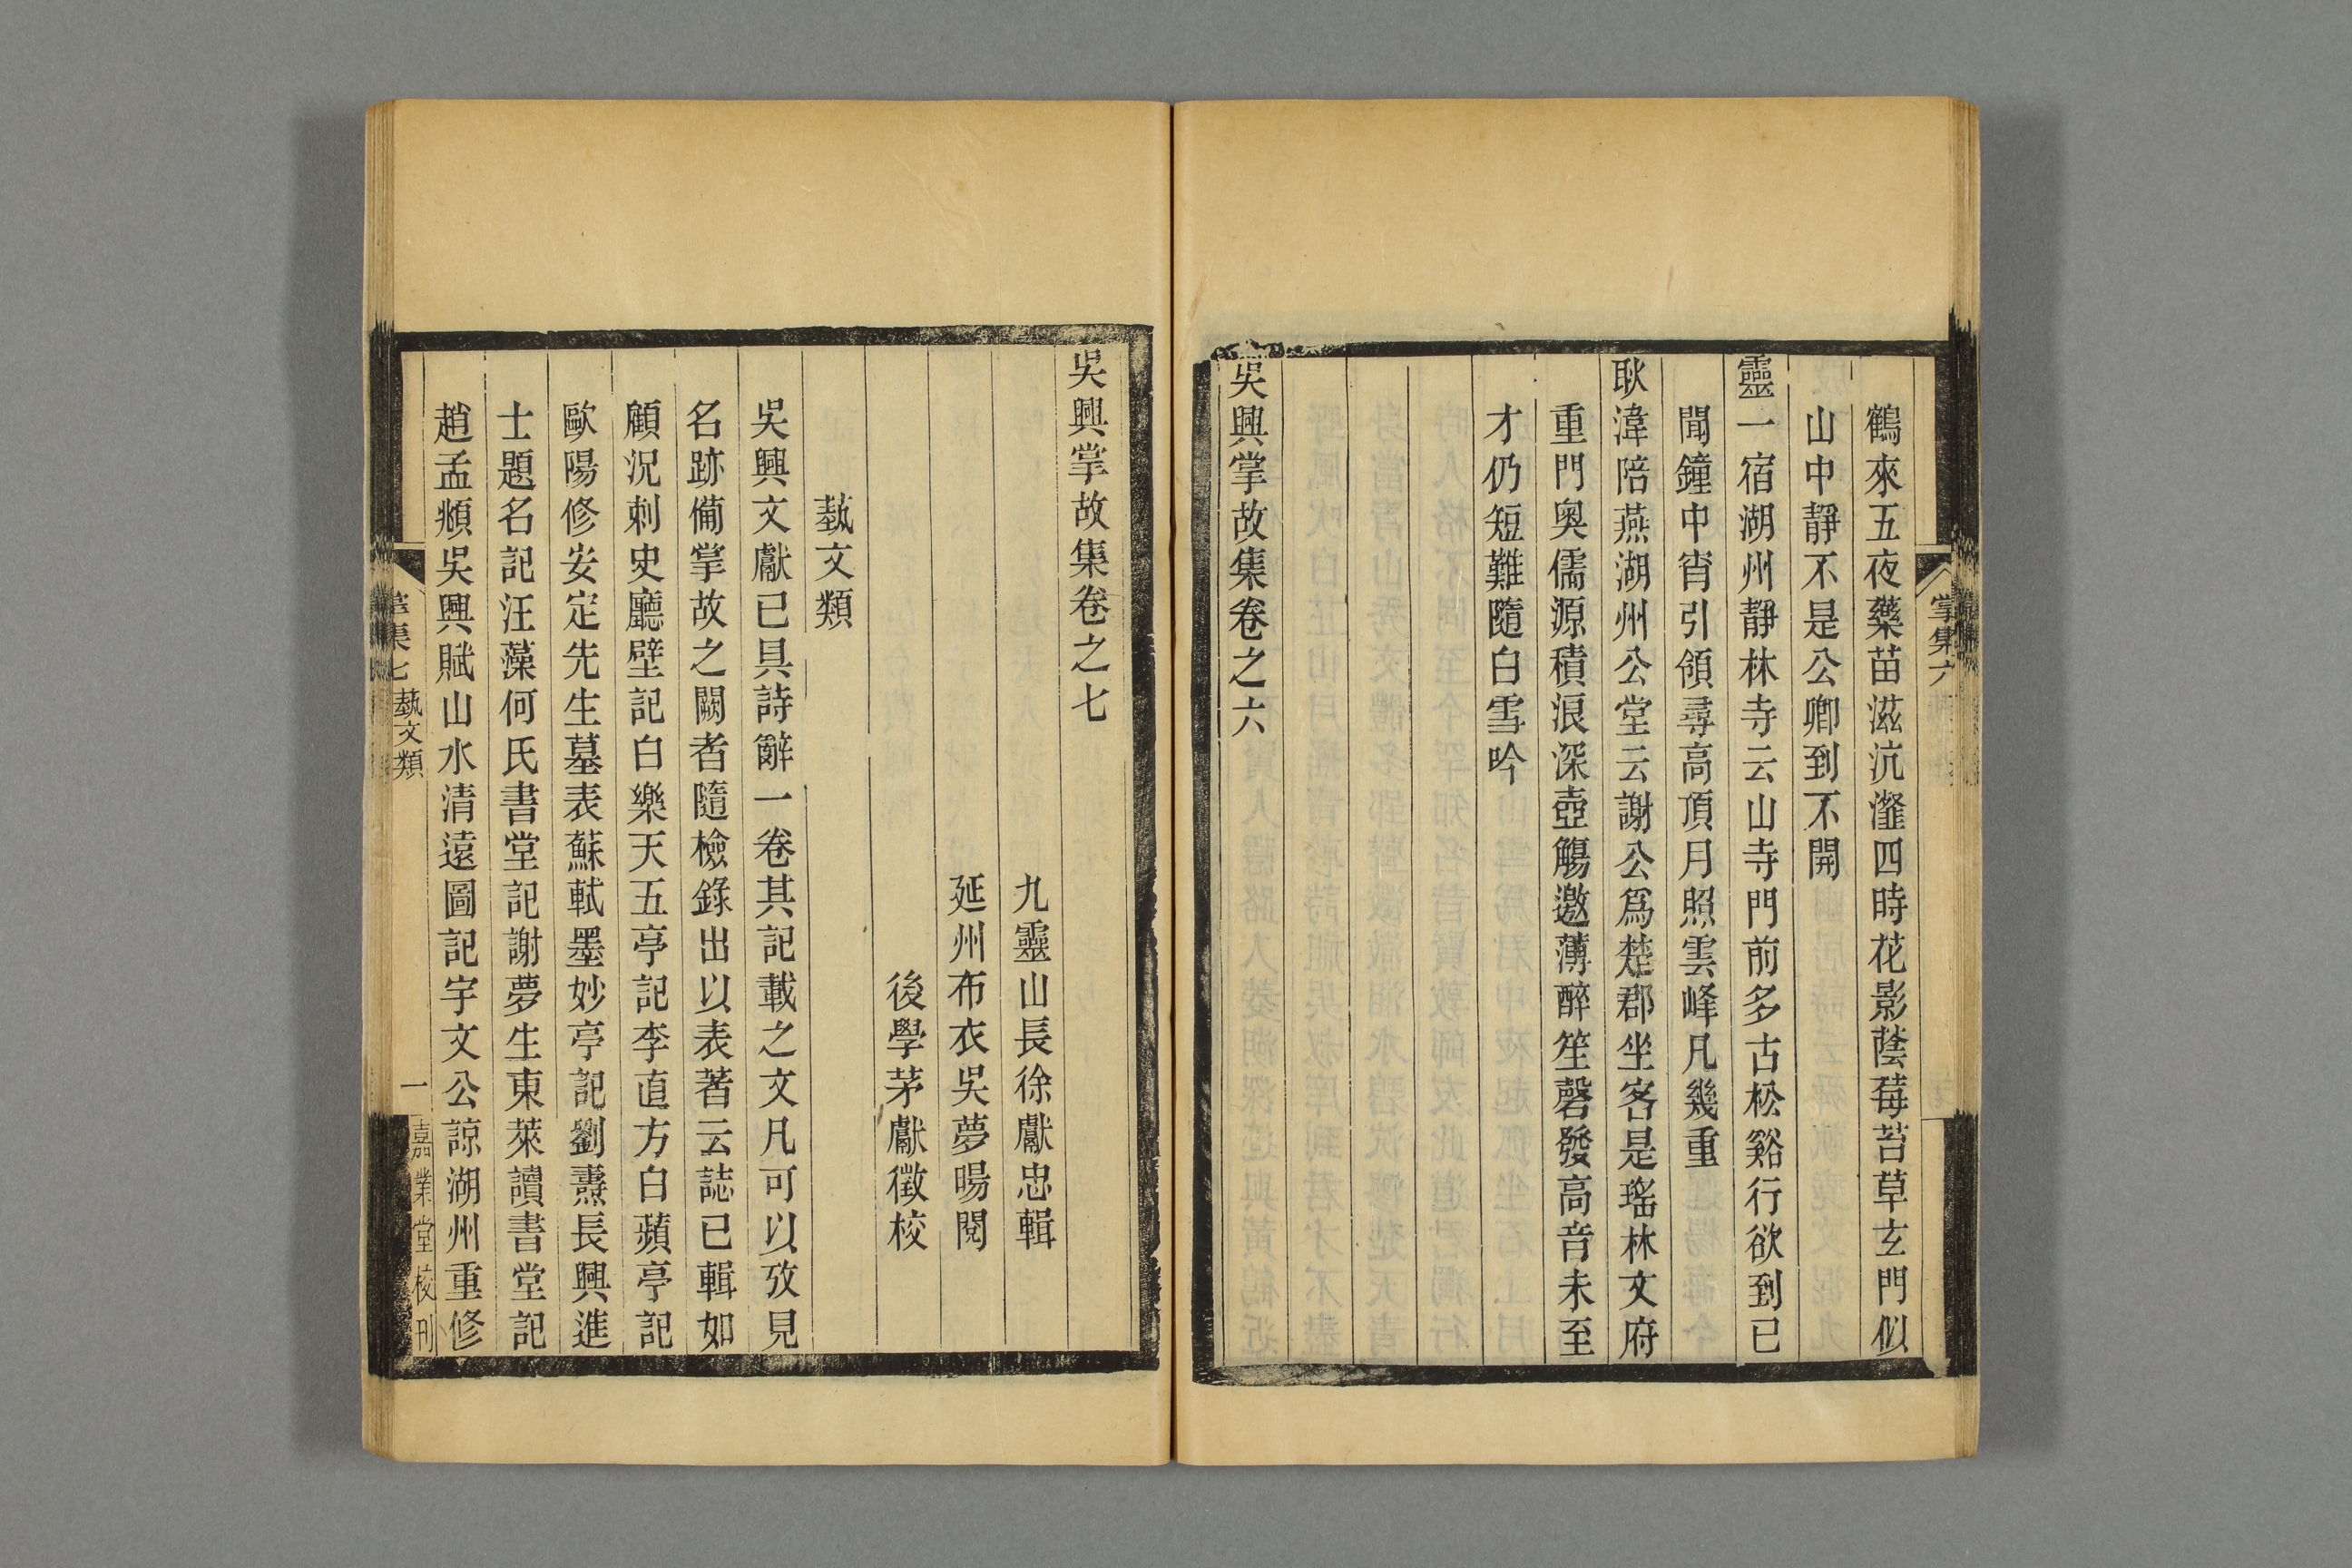 鶴來五夜藥苗滋沆瀣四時花影蔭莓苔草玄門似
山中靜不是公卿到不開
靈一宿湖州靜林寺云山寺門前多古松谿行欲到已
聞鐘中宵引領尋高頂月照雲峰凡幾重
耿湋陪燕湖州公堂云謝公爲楚郡坐客是瑤林文府
重門奥儒源積浪深壺觴邀薄醉笙磬發高音未至
才仍短難隨白雪吟
吳興掌故集卷之六
掌集六
吳興掌故集卷之七
九靈山長徐獻忠輯
延州布衣吳夢暘閱
後學茅獻徵校
蓺文類
吳興文獻已具詩辭一卷其記載之文凡可以攷見
名跡備掌故之闕者隨檢錄出以表著云誌已輯如
顧況刺史廳壁記白樂天五亭記李直方白蘋亭記
歐陽修安定先生墓表蘇軾墨妙亭記劉燾長興進
士題名記汪藻何氏書堂記謝夢生東萊讀書堂記
趙孟頫吳興賦山水清遠圖記宇文公諒湖州重修
掌集七 蓺文類 一 嘉業堂校刊